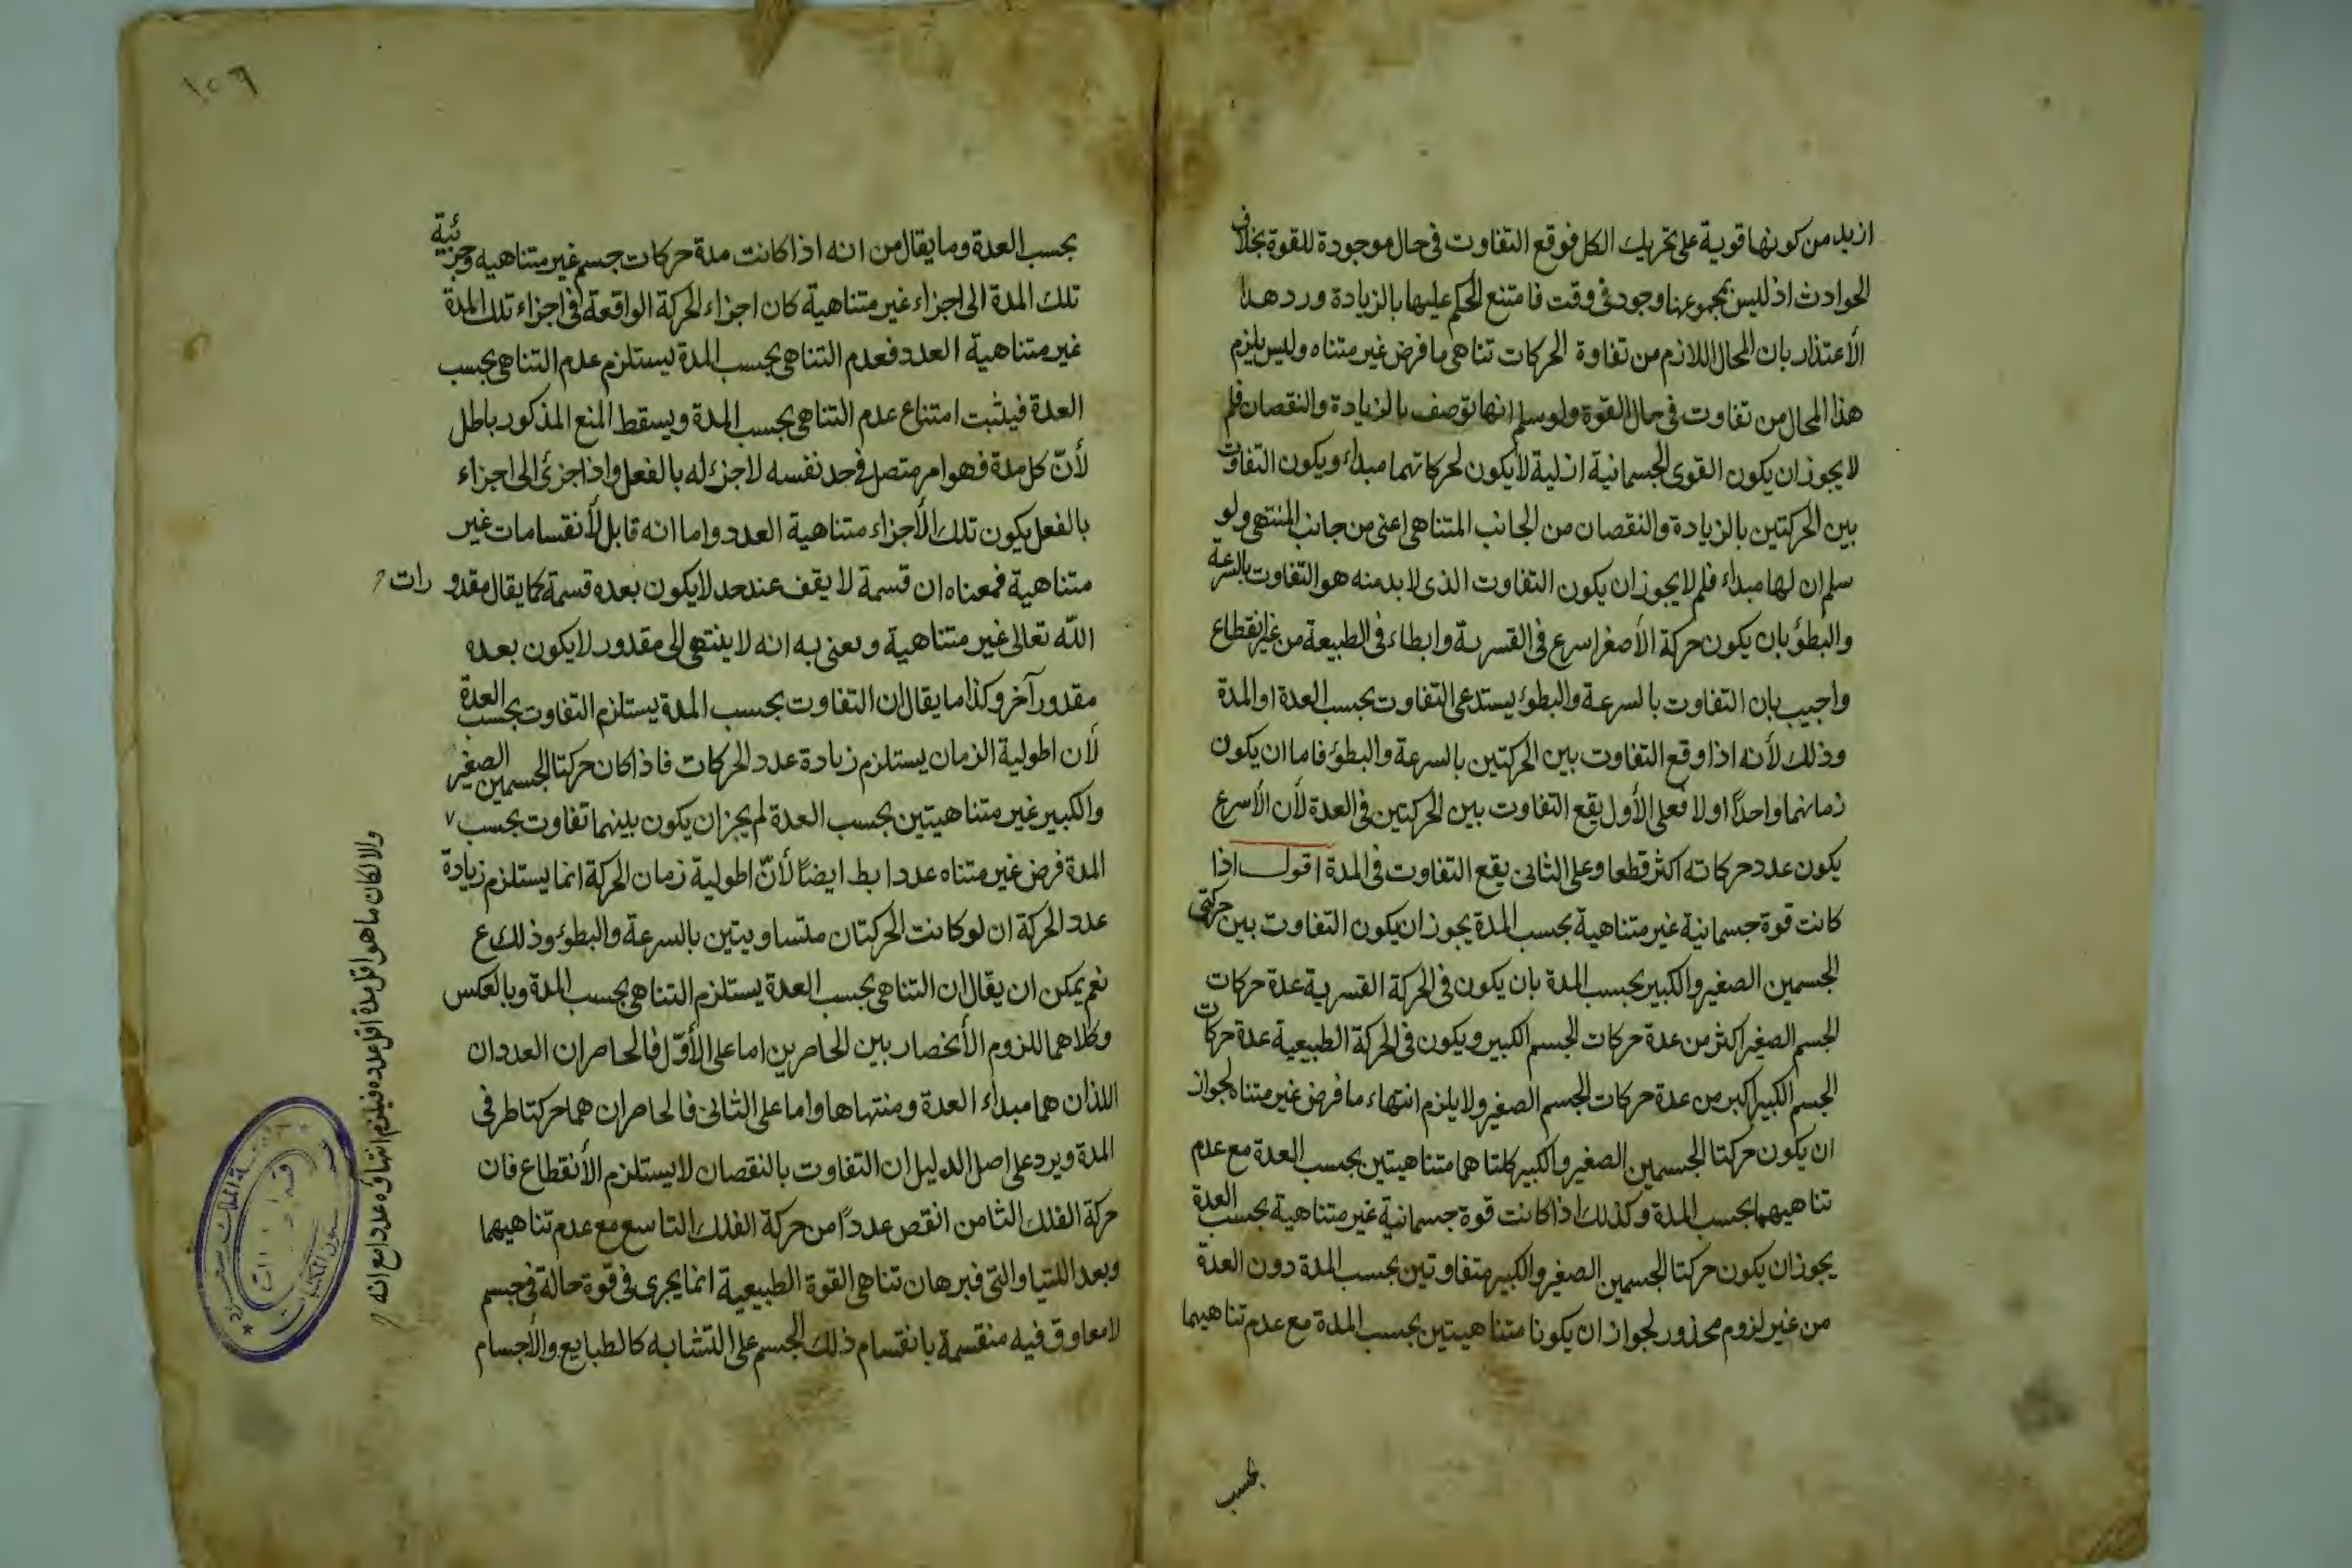 ازيد من كونها قوية على تحريك الكل فوقع التفاوت فى حال موجودة للقوة بخلاف
الحوادث اذ ليس لمجموعها وجود فى وقت فامتنع الحكم عليها بالزيادة ورد هذا
الأعتذار بان المحال اللازم من تفاوة الحركات تناهى ما فرض غير متناه وليس يلزم
هذا المحال من تفاوت فى حال القوة ولو سلم انها توصف بالزيادة والنقصان فلم
لا يجوز ان يكون القوى الجسمانية ازلية لا يكون لحركاتهما مبداء ويكون التفاوت
بين الحركتين بالزيادة والنقصان من الجانب المتناهى اعنى من جانب المنتهى ولو
سلم ان لها مبداء فلم لا يجوز ان يكون التفاوت الذى لا بد منه هو التفاوت بالسرعة
والبطؤ بان يكون حركة الأصغر اسرع فى القسرية وابطاء فى الطبيعة من غير انقطاع
واجيب بان التفاوت بالسرعة والبطؤ يستدعى التفاوت بحسب العدة او المدة
وذلك لأنه اذا وقع التفاوت بين الحركتين بالسرعة والبطؤ فاما ان يكون
زمانهما واحدًا او لا فعلى الأول يقع التفاوت بين الحركتين فى العدة لأن الأسرع
يكون عدد حركاته اكثر قطعا وعلى الثانى يقع التفاوت فى المدة اقول اذا
كانت قوة جسمانية غير متناهية بحسب المدة يجوز ان يكون التفاوت بين حركتى
الجسمين الصغير والكبير بحسب المدة بان يكون فى الحركة القسرية عدة حركات
الجسم الصغير اكثر من عدة حركات الجسم الكبير ويكون فى الحركة الطبيعية عدة حركات
الجسم الكبير اكبر من عدة حركات الجسم الصغير ولا يلزم انتهاء ما فرض غير متناه لجواز
ان يكون حركتا الجسمين الصغير والكبير كلتاهما متناهيتين بحسب العدة مع عدم
تناهيهما بحسب المدة وكذلك اذا كانت قوة جسمانية غير متناهية بحسب العدة
يجوز ان يكون حركتا الجسمين الصغير والكبير متفاوتين بحسب المدة دون العدة
من غير لزوم محذور لجواز ان يكونا متناهيتين بحسب المدة مع عدم تناهيهما
بحسب
١٥٦
بحسب العدة وما يقال من انه اذا كانت مدة حركات جسم غير متناهيه وجزئية
تلك المدة الى اجزاء غير متناهية كان اجزاء الحركة الواقعة فى اجزاء تلك المدة
غير متناهية العدد فعدم التناهى بحسب المدة يستلزم عدم التناهى بحسب
العدة فيثبت امتناع عدم التناهى بحسب المدة ويسقط المنع المذكور باطل
لأنّ كل مدة فهو امر متصل فى حد نفسه لا جزء له بالفعل واذا جزئ الى اجزاء
بالفعل يكون تلك الأجزاء متناهية العدد واما انه قابل لأنقسامات غير
متناهية فمعناه ان قسمة لا يقف عند حد لا يكون بعده قسمة كما يقال مقدورات
اللّه تعالى غير متناهية ويعنى به انه لا ينتهى الى مقدور لا يكون بعده
مقدور آخر وكذا ما يقال ان التفاوت بحسب المدة يستلزم التفاوت بحسب العدة
لأن اطولية الزمان يستلزم زيادة عدد الحركات فاذا كان حركتا الجسمين الصغير
والكبير غير متناهيتين بحسب العدة لم يجز ان يكون بينهما تفاوت بحسب
المدة فرض غير متناه عددا بط ايضًا لأنّ اطولية زمان الحركة انما يستلزم زيادة
عدد الحركة ان لو كانت الحركتان متساويتين بالسرعة والبطؤ وذلك ع
نعم يمكن ان يقال ان التناهى بحسب العدة يستلزم التناهى بحسب المدة وبالعكس
وكلاهما للزوم الأنحصار بين الحاصرين اما على الأوّل فالحاصران العددان
اللذان هما مبداء العدة ومنتهاها واما على الثانى فالحاصران هما حركتا طرفى
المدة ويرد على اصل الدليل ان التفاوت بالنقصان لا يستلزم الأنقطاع فان
حركة الفلك الثامن انقص عددًا من حركة الفلك التاسع مع عدم تناهيهما
وبعد اللتيا والتى فبرهان تناهى القوة الطبيعية انما يجرى فى قوة حالة فى جسم
لا معاوق فيه منقسمة بانقسام ذلك الجسم على التشابه كالطبايع والأجسام
والا لكان ما هو اقل مدة اقل عدده فيلزم انتهاؤه عددا مع انه